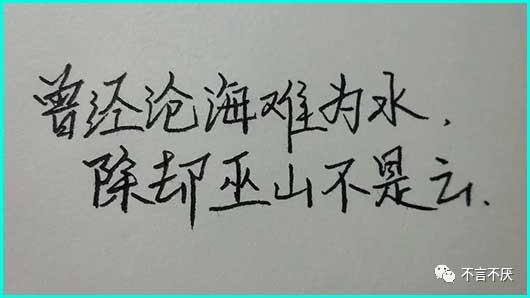 曾经沧海难为水，
除却巫山不是云.
不言不厌